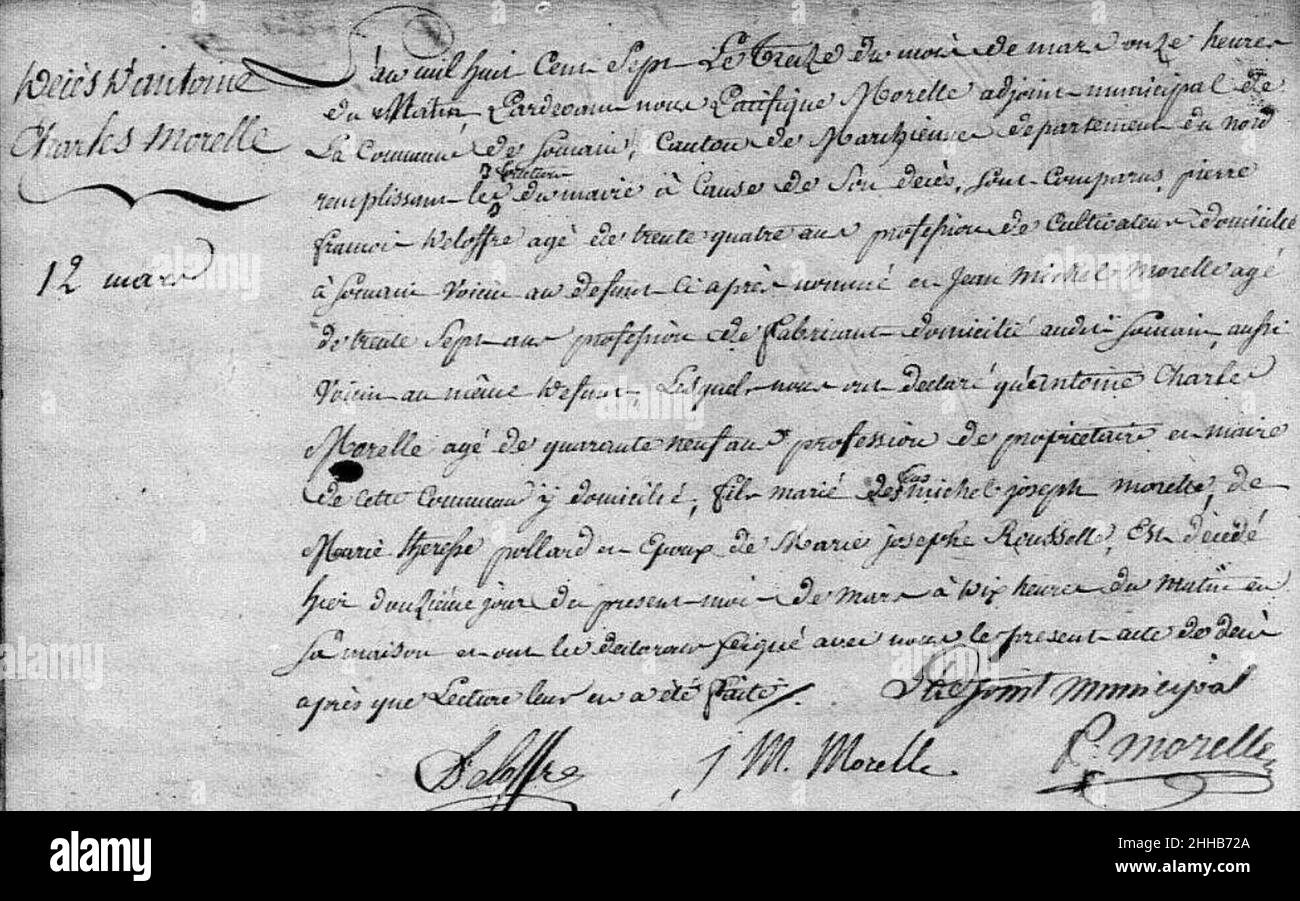 Décès d'antoine
Charles Morelle
12 mars
L'an mil huit Cent Sept Le Treize du mois de mars onze heures
du Matin, Pardevant nous Pacifique Morelle adjoint municipal de
La Commune de Somain, Canton de Marchienne departement du nord
fonction
remplissant les du maire à Cause de Son decès, sont comparus, pierre
francois Deloffre agé de trente quatre ans profession de Cultivateur domicilié
à Somain Voisin au defunt Ci après nommé et Jean Michel Morelle agé
de trente Sept ans profession de fabricant domicilié audit Somain, aussi
Voisin au même Defunt, Lesquels nous ont declaré qu'antoine Charles
Morelle agé de quarante neuf ans profession de propriétaire et maire
de cette Commune y domicilié, fils marié de michel joseph morelle, de
Marie therese pollard et Epoux de Marie josephe Rousselle, Est décédé
hier douzième jour du present mois de mars à Dix heures du Matin en
Sa maison et ont les declarans Signé avec nous le present acte de decès
après que Lecture leur en a été faite.
L'adjoint municipal
Deloffre
J M. Morelle
P. Morelle
alamy
Image ID: 2HHB72A
www.alamy.com